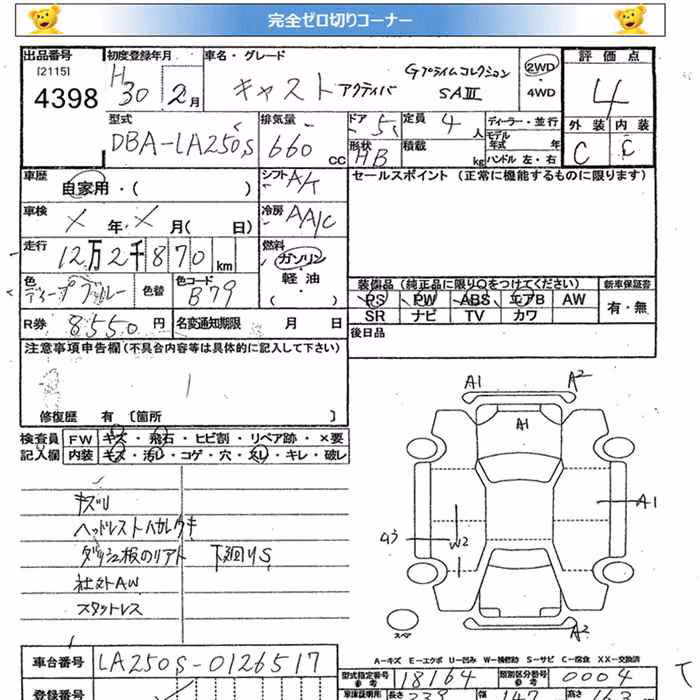 完全ゼロ切りコーナー
出品番号 初度登録年月 車名・グレード 評価点
[2115] 4398 H30 2月 キャスト アクティバ GプライムコレクションSAⅢ 2WD 4WD 4
型式 排気量 ドア 5 定員 4人 ディーラー・並行 外装 内装
DBA-LA250S 660cc 形状 HB 積載 kg モデル年式 年 ハンドル 左・右 C C
車歴 自家用・( ) シフト A/T セールスポイント (正常に機能するものに限ります)
車検 X年X月( 日) 冷房 AAC
走行 12万2千870km 燃料 ガソリン・軽油・( )
色 ディープブルー 色替 色コード B79 装備品 (純正品に限り○をつけてください) 新車保証書
PS PW ABS エアB AW 有・無
SR ナビ TV カワ
R券 8550円 名変通知期限 月 日 後日品
注意事項申告欄 (不具合内容等は具体的に記入して下さい)
修復歴 有 〔箇所 〕
検査員 FW キズ・飛石・ヒビ割・リペア跡・×要
記入欄 内装 キズ・汚レ・コゲ・穴・スレ・キレ・破レ
キズU
ヘッドレスト
下廻りS
社外AW
スタットレス
A1 A2
A1
A1
W2
A2
スペア
A-キズ E-エクボ U-凹み W-補修跡 S-サビ C-腐食 XX-交換済
車台番号 LA250S-0126517 型式指定番号 参考 18164 類別区分番号 参考 0004
登録番号 車庫証明用 長さ 339 幅 147 高さ